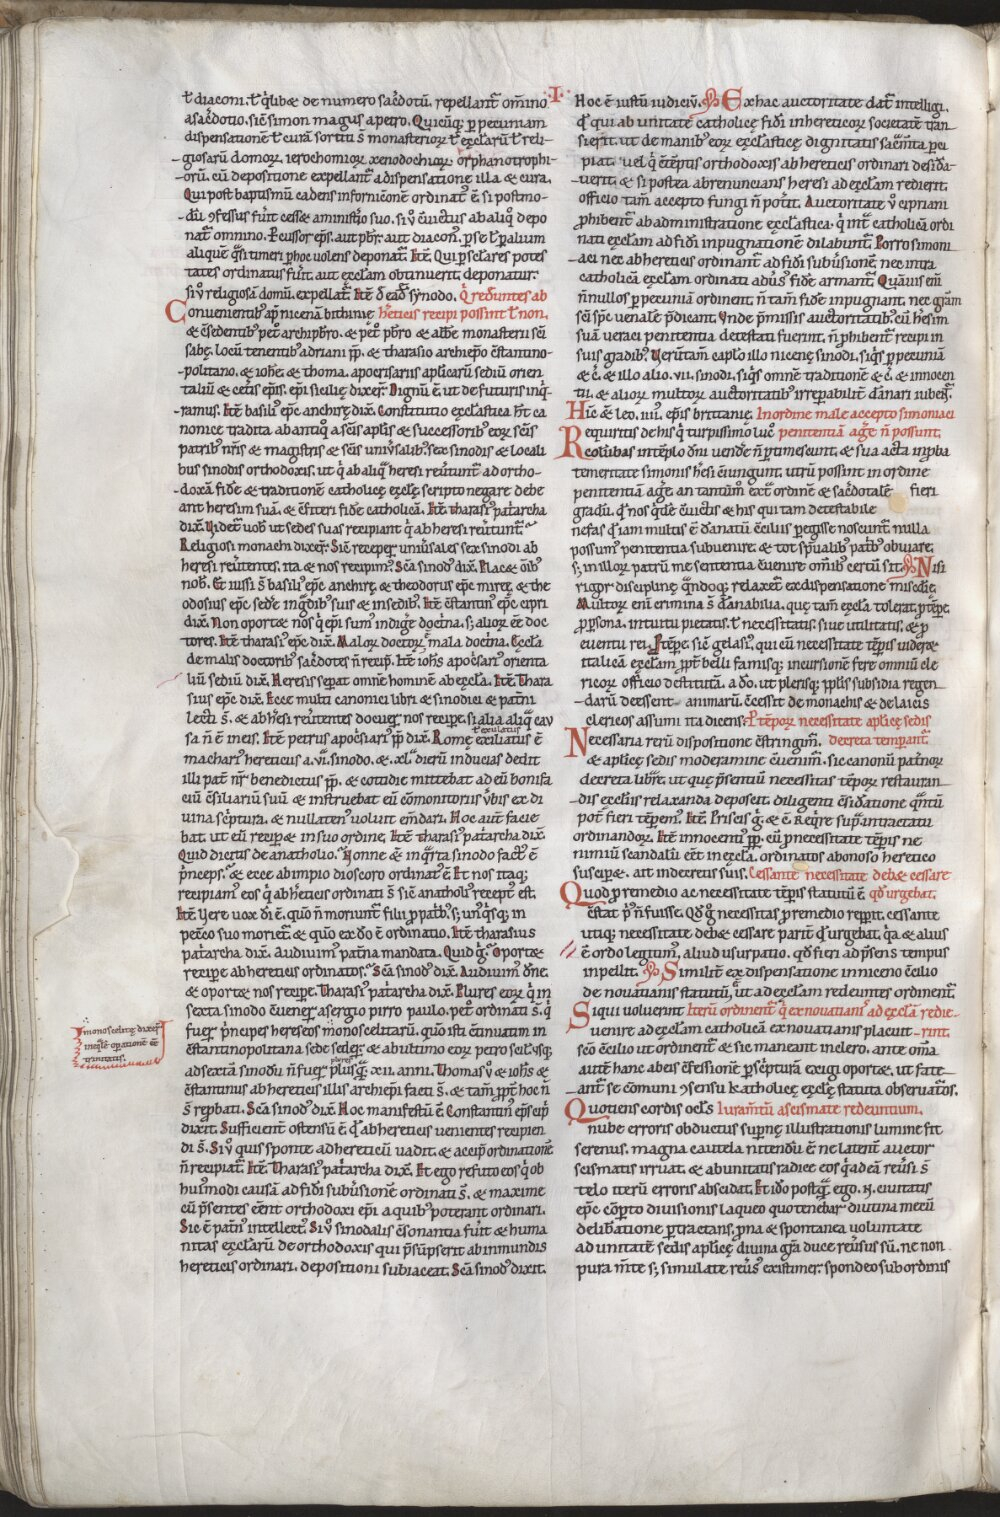 ·I·
ł diaconi. ł q̔libet de numero sac̄dotū. repellant̄ om̄ino
a sac̄dotio. sic̄ simon magus a petro. Quicūq; p pecuniam
dispensationē ł curā sortiti s̄ monasterioꝝ ł ęcc̄larū ł reli-
giosarū domoꝝ. ierochomioꝝ xenodochioꝝ orphanotrophi-
orū. cū depositione expellant̄ a dispensatione illa & cura.
Qui post baptismū cadens in fornicōnē ordinat̄ ē si postmo-
dū ꝯfessus fūit cesset a ministio suo. si ū c̄uictus ab aliq̊ depo
nat̄ omnino. Pcussor ep̄s. aut pb̄r. aut diacon̄. p se ł p alium
aliquē q̄si timeri p hoc volens deponat̄. Itē. Qui p sclares potes
tates ordinatus fūit. aut ęcc̄lam obtinuerit. deponatur.
si ū religiosā domū. expellat̄. Itē d̄ eadē synodo. Q̔ red̄untes ab
Convenientib; ap̄ nicenā bithinię hereticis recipi possint ł non.
& c̄sedentib; pet̊ archipb̄ro. & pet̊ pb̄ro & abb̄e monasterii sc̄i
sabę. locū tenentib; adriani pp̄. & tharasio archiep̄o c̄stantino-
politano. & ioh̄e & thoma. apocrisariis aplicarū sediū orien
taliū & cet̄is ep̄is. ep̄i sicilię dixer̄. Dignū ē. ut de futuris inq̔-
ramus. Itē basili9 ep̄c anchirę dix̄. Constitutio ęcc̄lastica. h̄t ca
nonice tradita ab antiq̊ a sc̄is aplis & successorib; eoꝝ sc̄is
patrib; nr̄is & magistris & sc̄is univ̄salib; sex sinodis & locali
bus sinodis orthodoxis. ut q̔ ab aliq̄ heresi reūtunt̄ ad ortho-
doxā fidē & traditionē catholicę ęcc̄lę scripto negare debe
ant heresim suā. & c̄fiteri fidē catholicā. Itē tharasi9 pat̔archa
dix̄. Videt̄ uob̄ ut sedes suas recipiant q̔ ab heresi reūtunt̄.
Religiosi monachi dixer̄. Sic̄ receper̄ uniūsales sex sinodi ab
heresi reūtentes. ita & nos recipim9. Sc̄a sinod9 dix̄. Placet oīb;
nob̄. Et iussi s̄ basili9 ep̄c anchirę. & theodorus ep̄c mirę. & the
odosius ep̄c sedē in gdib; suis & in sedib;. Itē c̄stantin9 ep̄c cipri
dix̄. Non oportet nos q̔ ep̄i sum9 indigē doct̔na. s; alioꝝ eē doc
tores. Itē tharasi9 ep̄c dix̄. Maloꝝ doctoꝝ mala doct̔na. Ęcc̄la
de malis doctorib; sac̄dotes n̄ recip̄. Itē ioh̄s apoc̔sari9 orienta
liū sediū dix̄. Heresis sep̄at omnē hominē ab ęcc̄la. Itē. Thara
sius ep̄c dix̄. Ecce multi canonici libri & sinodici & pat̄ni
lecti s̄. & ab h̄esi reūtentes docuer̄ nos recip̄e. si alia aliq̄ cau
sa n̄ ē in eis. Itē petrus apoc̔sari9 pp̄ dix̄. Romę exiliatus ē
ł exulatus
machari9 hereticus a .vi. sinodo. & .xl. dierū inducias dedit
illi pat̄ nr̄ benedictus pp̄. & cotidie mittebat ad eū bonifa
ciū c̄siliariū suū & instruebat eū c̄omonitoriis ūbis ex di
uina sc̔ptura. & nullaten9 uoluit em̄dari. Hoc autē facie
bat. ut eū recip̄et in suo ordine. Itē tharasi9 pat̔archa dix̄.
Quid dicitis de anatholio. Nonne & in q̄rta sinodo fact9 ē
p̔nceps. & ecce ab impio dioscoro ordinat9 ē. Et nos itaq;
recipiam9 eos q̔ ab h̄eticis ordinati s̄ sic̄ anatholi9 recept9 est.
Itē. Vere uox di ē. quō n̄ moriunt̄ filii p patb;. s; un9 q̔sq; in
pecc̄o suo moriet̄. & quō ex dō ē ordinatio. Itē tharasius
pat̔archa dix̄. Audivim9 pat̄na mandata. Quid g̊. Oportet
recipe ab hereticis ordinatos. Sc̄a sinod9 dix̄. Audivim9 dn̄e.
& oportet nos recip̄e. Tharasi9 pat̔archa dix̄. Plures eoꝝ q̔ in
sexta sinodo c̄uener̄ a sergio pirro paulo. pet̊ ordinati s̄. q̔
fuer̄ p̔ncipes hereseos monoscelitarū. quō ista c̄tinuatim in
c̄stantinopolitana sede seder̄. & ab ultimo eoꝝ petro scil̄ usq;
ad sextā sinodū n̄ fuer̄ plusq̄ .xii. anni. Thomas ū & ioh̄s &
plures
c̄stantinus ab hereticis illis archiep̄i facti s̄. & tam̄ ppt̄ hoc n̄
s̄ rep̄bati. Sc̄a sinod9 dix̄. Hoc manifestū ē. Constantin9 ep̄s cip̔
dixit. Sufficient̄ ostensū ē q̊d ab hereticis uenientes recipien
di s̄. Si ū quis sponte ad hereticū uadit. & accip̄ ordinationē
n̄ recipiat̄. Itē. Tharasi9 pat̔archa dix̄. Et ego refuto eos q̔ ob
hui9modi causā ad fidi subūsionē ordinati s̄. & maxime
cū p̄sentes eēnt orthodoxi ep̄i a quib; poterant ordinari.
Sic ē patr̄ intellect9. Si ū sinodalis c̄sonantia fūit & huma
nitas ęcc̄larū de orthodoxis qui p̄sūpserit ab inmundis
hereticis ordinari. depositioni subiaceat. Sc̄a sinod9 dixit.
monoscelitę dixer̄
in c̄pto operationē eē
trinitatis.
Hoc ē iustū iudiciū. Ex hac auctoritate dat̄ intelligi.
q̊d qui ab unitate catholicę fidi in hereticoꝝ societatē tran
sierit. ut de manib; eoꝝ ęcc̄lasticę dignitatis sac̄mta pci
piat. uel q̔ c̄tēptis orthodoxis ab hereticis ordinari desida-
uerit. & si postea abrenuncians heresi ad ęcc̄lam redierit.
officio tam̄ accepto fungi n̄ pot̄it. Auctoritate ū cipriani
phibent̄ ab administratione ęcc̄lastica. q̔ int̄ catholicā ordi
nati ęcc̄lam ad fidi inpugnationē dilabunt̄. Porro simoni-
aci nec ab hereticis ordinant̄ ad fidi subūsionē. nec intra
catholicā ęcc̄lam ordinati adūs9 fidē armant̄. Quāuis eni
n̄nullos p pecuniā ordinent. n̄ tam̄ fidē inpugnant. nec gr̄am
sc̄i sp̄c uenalē p̄dicant. Vnde p̄missis auctoritatib; cū h̄esim
suā ueraci penitentia detestati fuerint. n̄ phibent̄ recipi in
suis gradib;. Verūtam̄ caplo illo nicenę sinodi. siq̔s p pecuniā
& c̄. & illo alio .vii. sinodi. siq̔s omnē traditionē & c̄. & innocen
tii. & alioꝝ multoꝝ auctoritatib; irreparabilit̄ dānari iubent̄.
Hinc ē leo .iiii. ep̄is brittanię. In ordine male accepto simoniaci
Requiritis de his q̔ turpissimo lucō penitentiā agē n̄ possunt.
columbas in tēplo dn̄i vendē n̄ ptimescunt. & sua acta inpba
temeritate simonis h̄esi c̄iungunt. utrū possint in ordine
penitentiā agē. an tantūm ext̄ ordinē & sac̄dotale fieri
gradū. q̊d nos q̔dē c̄uictis & his qui tam detestabile
nefas q̊d iam multis ē dānatū c̄ciliis pegisse noscunt̄. nulla
possum9 penitentia subuenire. & tot sp̄ualib; patb; obuiare.
s; in illoꝝ patrū me sententia c̄uenire om̄ib; certū sit. Nisi
rigor disciplinę q̄ndoq; relaxet̄ ex dispensatione mis̄c̄die.
Multoꝝ eni crimina s̄ dānabilia. quę tam̄ ęcc̄la tolerat. p tēpe.
p psona. intuitu pietatis. ł necessitatis. siue utilitatis. & p
euentu rei. P tēpe. sic̄ gelasi9. qui cū necessitate tēpis viderēt
italicā ęcc̄lam. ppt̄ belli famisq; incursionē fere omniū cle
ricoꝝ officio destitutā. adō. ut plerisq; p̄plis subsidia regen
darū deessent animarū. c̄cessit de monachis & de laicis
clericos assumi ita dicens. P tēpoꝝ necessitate aplicę sedis
Necessaria rerū dispositione c̄stringim̄. decreta temperant̄.
& aplicę sedis moderamine c̄uenim̄. sic canonū pat̄noꝝ
decreta librāre. ut quę p̄sentiū necessitas tēpoꝝ restauran
dis ęcc̄liis relaxanda deposcit. diligenti c̄siđatione q̄ntū
pot̄ fieri tēpem9. Itē. Priscis g̊. & c̄. Req̔re sup̄ in tractatu
ordinandoꝝ. Itē innocenti9 pp̄. cū p necessitate tēpis ne
nimiū scandalū eēt in ęcc̄la. ordinatos a bonoso heretico
susciperet. ait in decretis suis. Cessante necessitate debet cessare
Quod p remedio ac necessitate tēpis statutū ē. qđ urgebat.
c̄stat p̔9 n̄ fuisse. Qđ g̊ necessitas p remedio repp̄it. cessante
utiq; necessitate debet cessare parit̄ q̊d urgebat. q̔a & alius
ē ordo legitim9. aliud usurpatio. qđ fieri ad p̄sens tempus
inpellit. Similit̄ ex dispensatione in niceno c̄cilio
de nouatianis statutū. ut ad ęcc̄lam redeuntes ordinent̄.
Siqui voluerint Iterū ordinent̄ q̔ ex nouatianis ad ęcc̄lā redie-
venire ad ęcc̄lam catholicā ex novatianis placuit rint.
sc̄o c̄cilio ut ordinent̄ & sic maneant in clero. ante om̄a
autē hanc abeis c̄fessionē p sc̔pturā exigi oportet. ut fate
ant̄ se cōmuni ꝯsensu katholicę ęcc̄lę statuta obseruatos.
Quotiens cordis ocl̄s Iuram̄tū a scismate redeuntium.
nube erroris obductus supnę illustrationis lumine fit
serenus. magna cautela nitendū ē ne latent̄ auctor
scismatis irruat. & ab unitatis radice eos q̔ ad eā reūsi s̄
telo iterū erroris abscidat. Et idō postq̄ ego .N. ciuitatis
ep̄c comp̄to divisionis laqueo quo tenebar diutina mecū
delib̄atione ptractans. prona & spontanea voluntate
ad unitatē sedis aplicę diuina gr̄a duce reūsus sū. ne non
pura m̄te s; simulate reūs9 existimer. spondeo sub ordinis